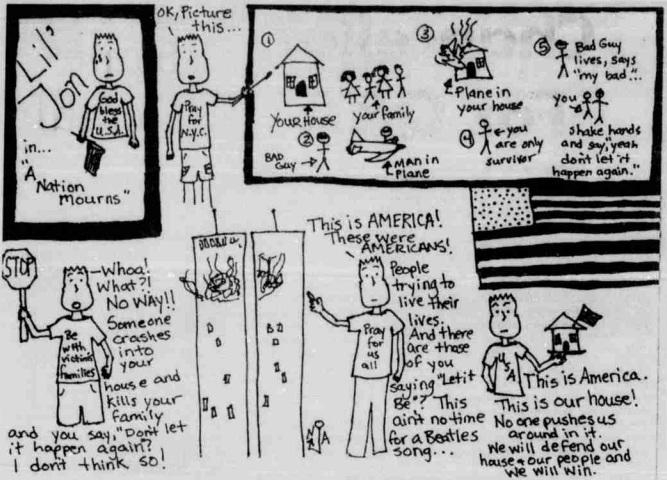 Lil'
Jon
God
bless
the
U.S.A.
in...
"A
Nation
Mourns"
OK, Picture
this...
Pray
for
N.Y.C.
①
YOUR HOUSE
your family
②
BAD
GUY
MAN IN
PLANE
③
Plane in
your house
④
you
are only
survivor
⑤
Bad Guy
lives, says
"my bad"...
you
shake hands
and say, "yeah
don't let it
happen again."
STOP
Be
with
victim's
families
Whoa!
What?!
NO WAY!!
Someone
crashes
into
your
house and
kills your
family
and you say, "Don't let
it happen again?
I don't think so!
This is AMERICA!
These were
AMERICANS!
People
trying to
live their
lives.
And there
are those
of you
saying "Let it
Be"? This
ain't no time
for a Beatles
song...
Pray
for
us
all
USA
This is America.
This is our house!
No one pushes us
around in it.
We will defend our
house & our people and
we will win.